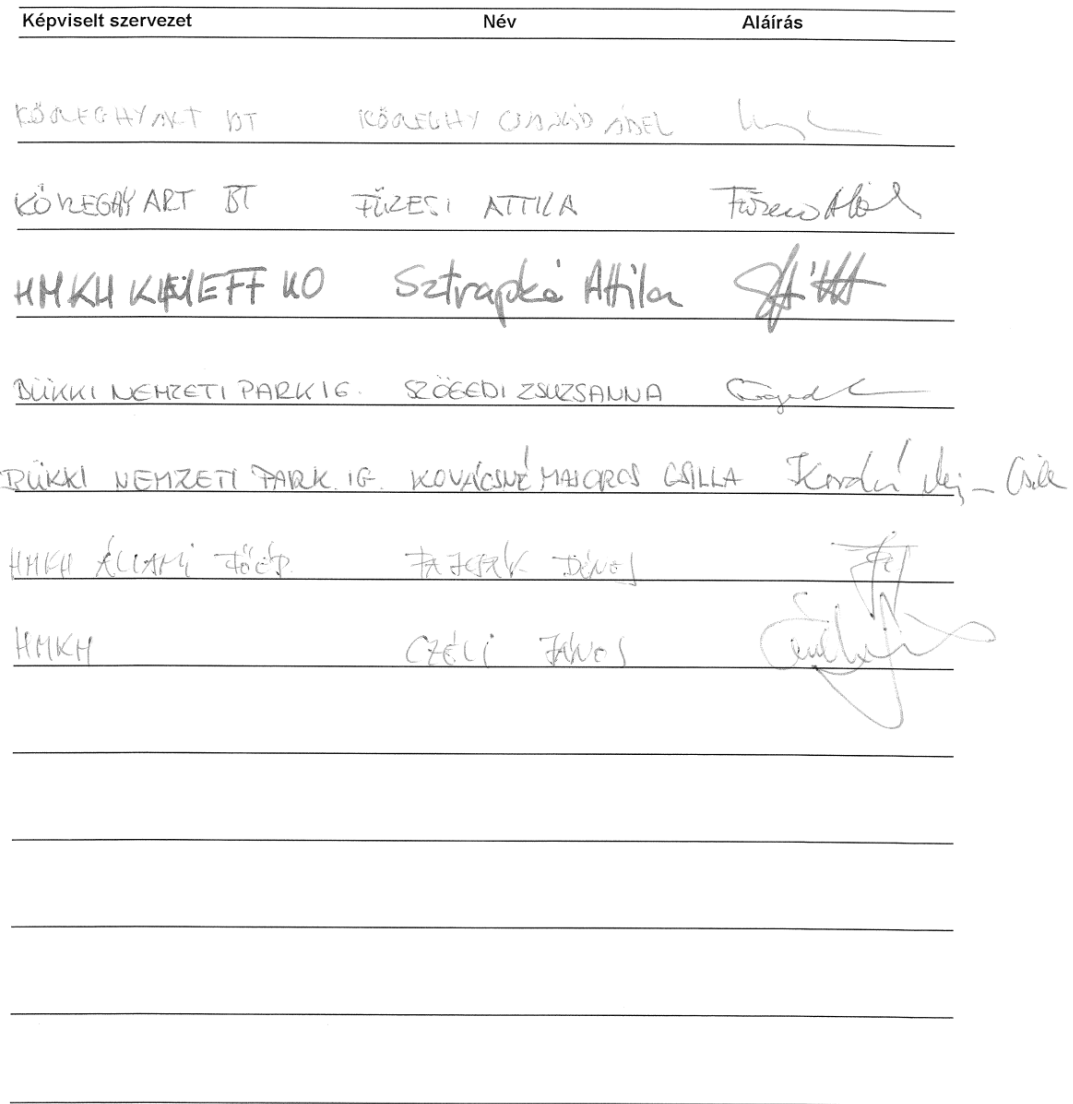 Képviselt szervezet Név Aláírás
KŐREGHY ART BT KŐREGHY CSANÁD ÁBEL
KŐREGHY ART BT FŰZESI ATTILA Füzesi Attila
HMKH Sztrapkó Attila
BÜKKI NEMZETI PARK IG. SZÖGEDI ZSUZSANNA
BÜKKI NEMZETI PARK. IG. KOVÁCSNÉ MAJOROS CSILLA
HMKH ÁLLAMI FŐÉP. DÉNES
HMKH CZÉLI JÁNOS